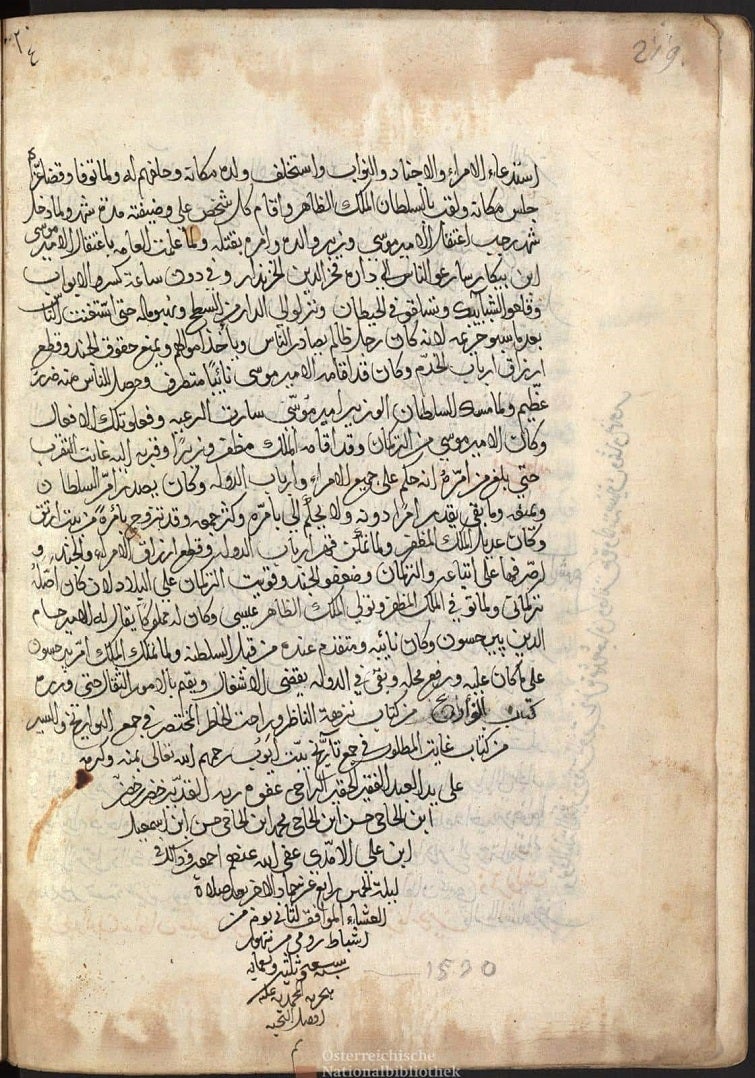 219.
استدعاء الامراء والاجناد والنواب واستخلف ولده مكانه وحلفهم له ولما توفا وقضا عزاه
جلس مكانه ولقب بالسلطان الملك الظاهر واقام كل شخص على وضيفته مدة شهر ولما دخل
شهر رجب اعتقل الامير موسى وزير والده وامره بقتله ولما علمت العامه باعتقال الامير موسى
ابن بيكار سارعو الناس الى داره فخر الدين الخزندار وفي دون ساعة كسرو الابواب
وقلعو الشبابيك وتسلقو في الحيطان ونزلو الى الدار من السطح ونهبوها حتى استغنت الناس
بعد ما سبو حريمه لانه كان رجل ظالم يصادر الناس وياخذ اموالهم ويمنع حقوق الجند وقطع
ارزاق ارباب الخدم وكان قد اقامه الامير موسى نائبا متطرف وحصل للناس منه ضررا
عظيم ولما مسك السلطان الوزير امير موسى سارت الرعيه وفعلو تلك الافعال
وكان الامير موسى من التركمان وقد اقامه الملك مظفر وزيرا وقربه اليه غايت التقرب
حتى بلغ من امره انه حكم على جميع الامراء وارباب الدوله وكان يصدر امر السلطان
ويمنعه وما بقي يقدر امرا دونه ولا يحكم الى بامره وكثر جمعه وقد تزوج بامرة من بيت ارتق
وكان عديل الملك المظفر ولما تمكن قهر ارباب الدوله وقطع ارزاق الامراء والجند و
صرفها على اتباعه والتركمان وضعفو الجند وقويت التركمان على البلاد لان كان اصله
تركماني ولما توفي الملك المظفر وتولى الملك الظاهر عيسى وكان له مملوكا يقال له الامير حسام
الدين بير حسون وكان نائبه ومتقدم عنده من قبل السلطنة ولما تملك الملك امر بير حسون
على ما كان عليه ورفع محله وبقى في الدوله يقضي الاشغال ويقم بالامور الثقال حتى وزره
كتب التواريخ من كتاب نزهة الناظر وراحت الخاطر المختصر في جمع التواريخ والسير
من كتاب غايت المطلوب في جمع تاريخ بيت ايوب رحمهم الله تعالى بمنه وكرمه
على يد العبد الفقير الحقير الراجي عفو ربه القدير خضر خضر
ابن الحاجي حسن ابن الحاجي محمد ابن الحاجي حسن ابن اسمعيل
ابن على الامدى عفى الله عنهم اجمعين وذالك في
ليلة الخميس رابع عشر جماد الاخر بعد صلاة
العشاء الموافق لثاني يوم من
اشباط رومى من شهور
سنه سبعه وثلثين وتسعمايه
هجريه المحمديه عليه
افضل التحيه
م
1530
Österreichische
Nationalbibliothek